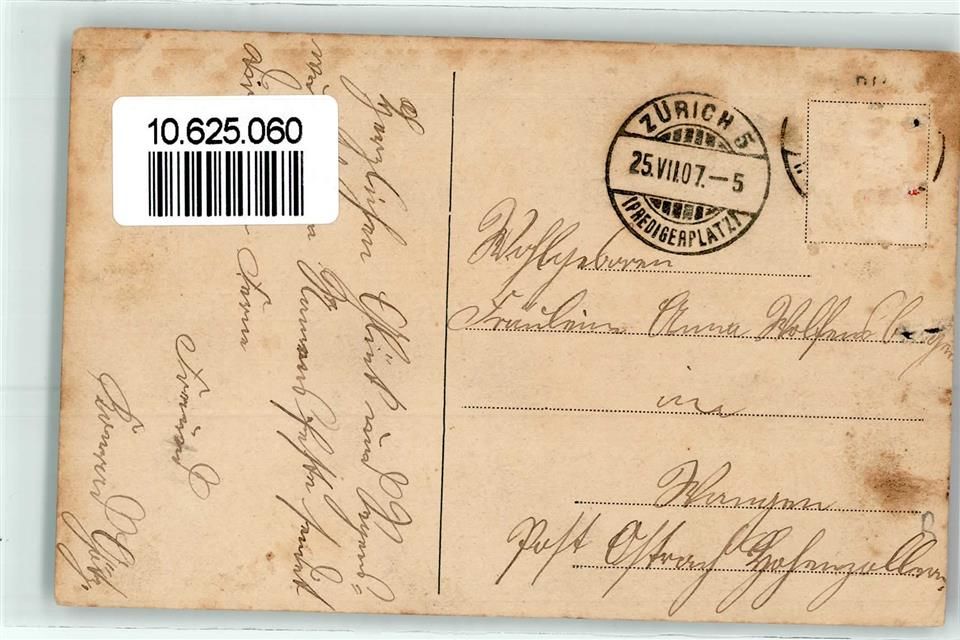 10.625.060
ZÜRICH 5
25.VII.07.–5
(PREDIGERPLATZ)
Wohlgeboren
Fräulein Anna Wolfensberger
in
Wangen
Post Ostrach Hohenzollern
Herzlichen Glück und Segens=
Namensfeste sendet
Ferne
Freund